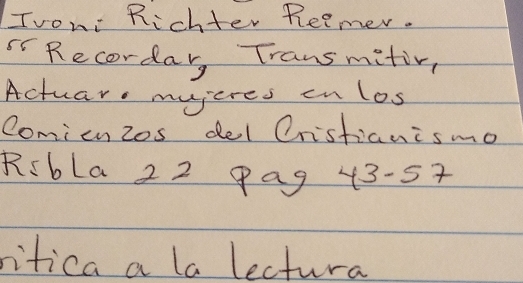 Ivoni Richter Reimer.
"Recordar, Transmitir,
Actuar. mujeres en los
Comienzos del Cristianismo
Ribla 22 pag 43-57
itica a la lectura